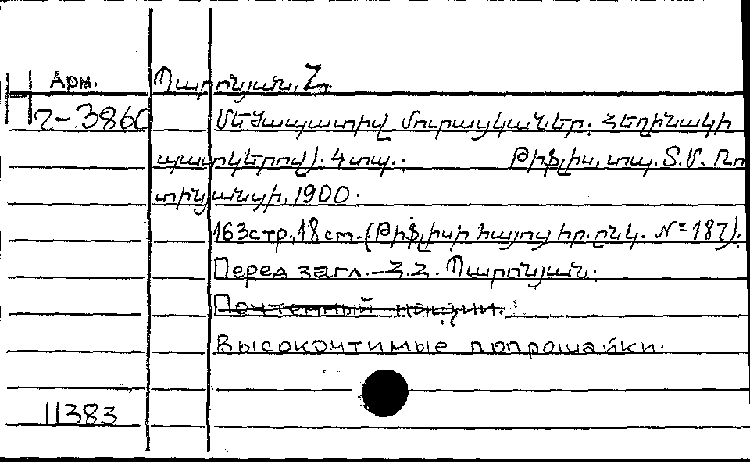 Арм. Պարոնյան, Հ.
2-3860 Մեծապատիվ մուրացկաններ. Հեղինակի
պատկերով): 4 տպ.: Թիֆլիս, տպ. Տ. Մ. Ռո
տինյանցի, 1900:
163 стр., 18 cm. (Թիֆլիսի հայոց հր. ընկ. № 187).
Перед загл. Հ. Հ. Պարոնյան.
Высокочтимые попрошайки.
11383